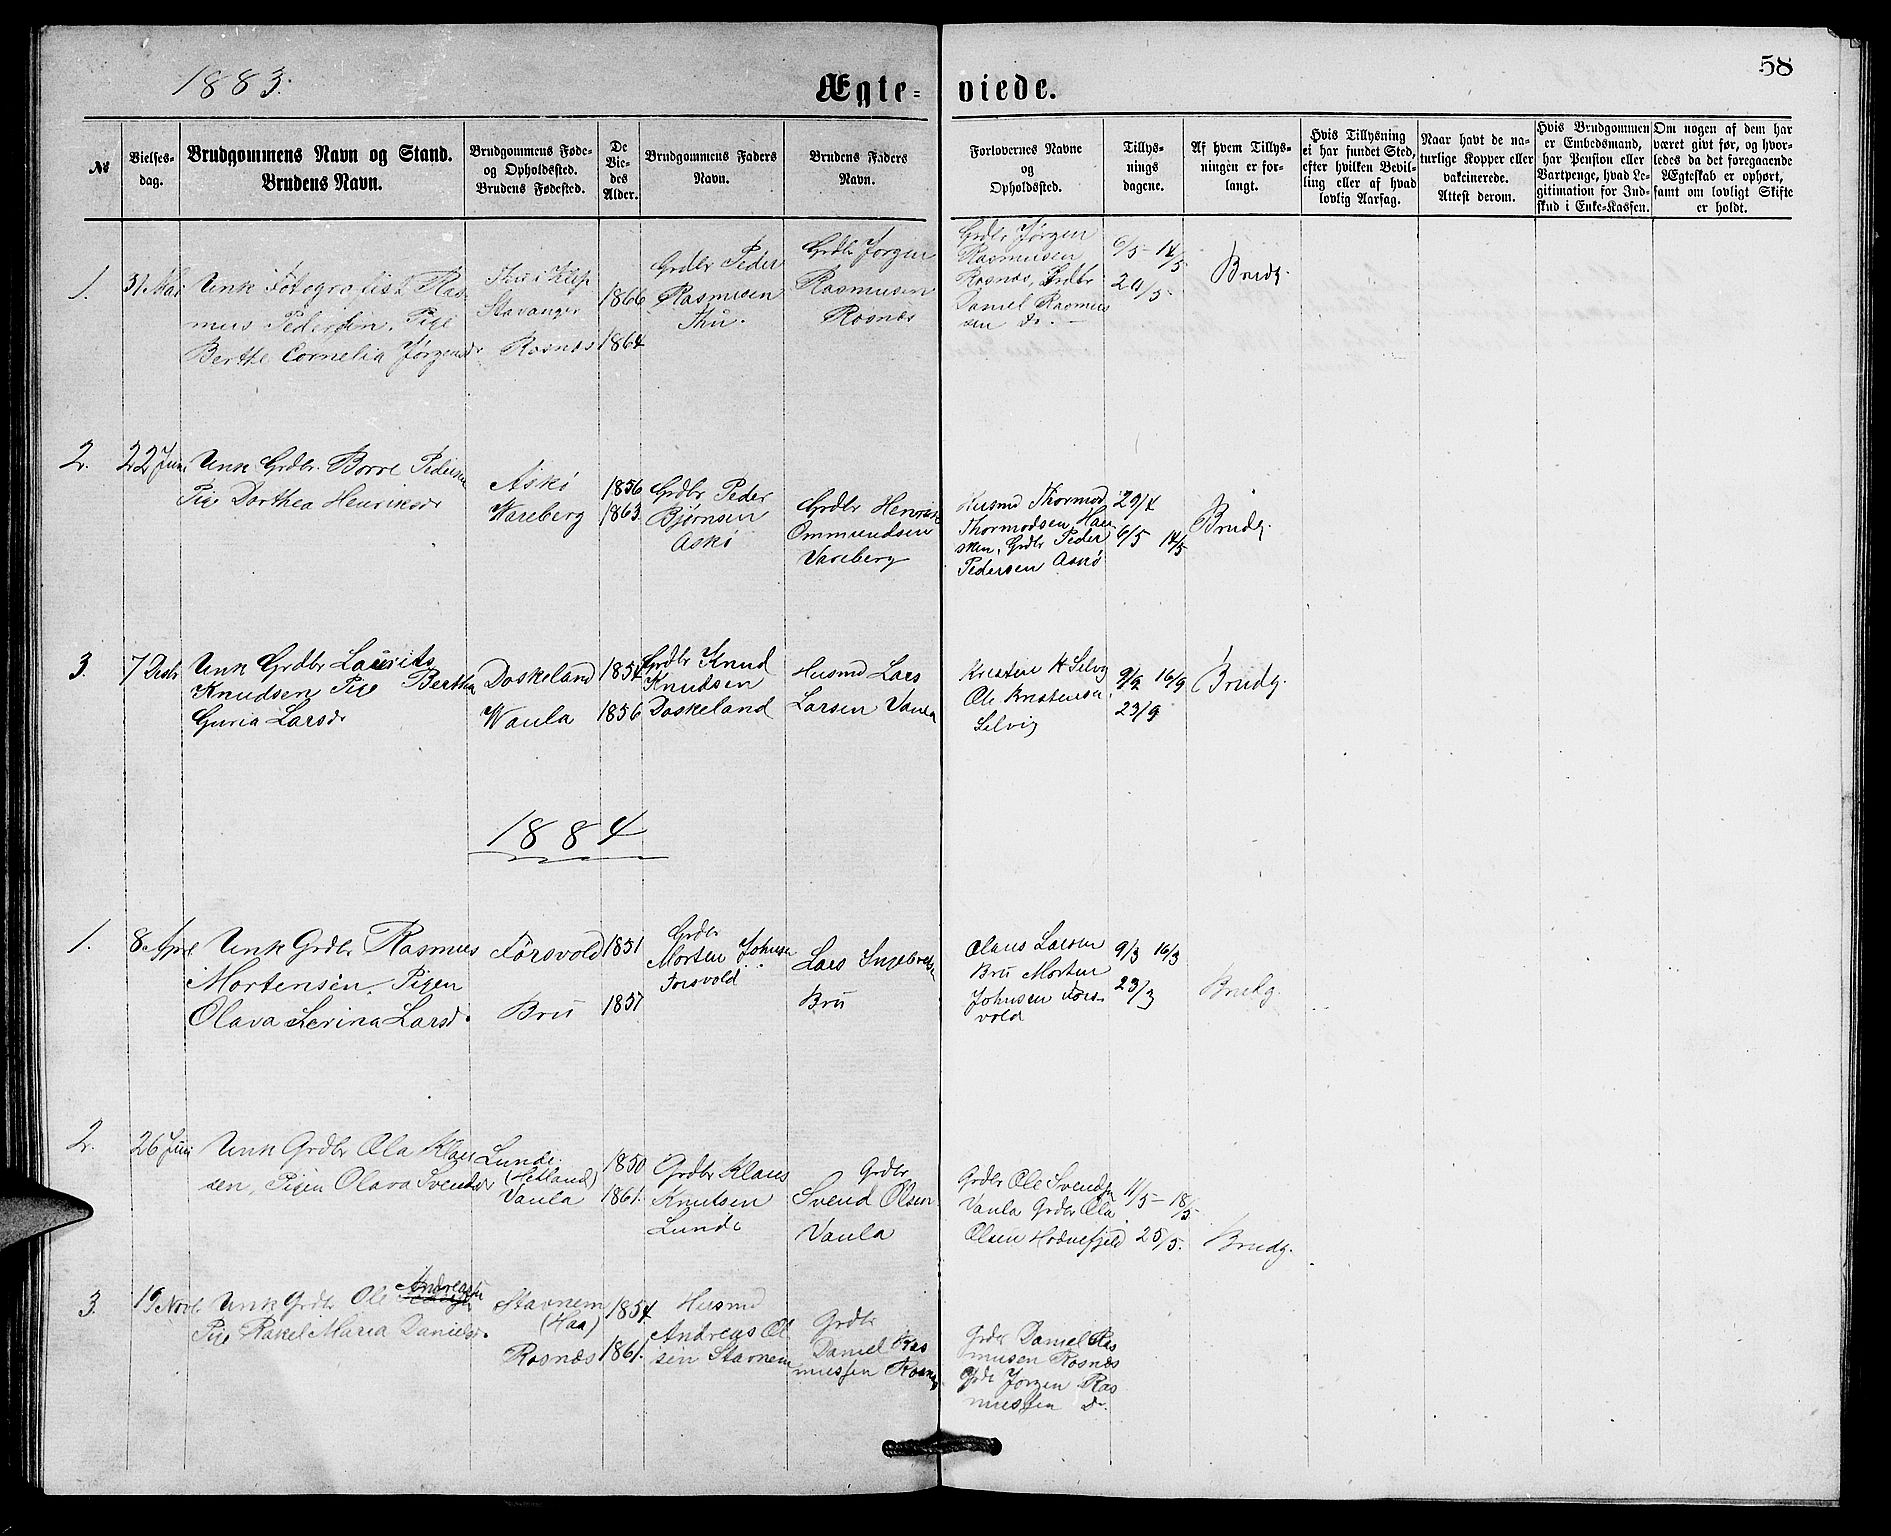 1883.
Ægte-viede.
58
No
Vielses-
dag.
Brudgommens Navn og Stand.
Brudens Navn.
Brudgommens Føde-
og Opholdssted.
Brudens Fødested.
De
Vie-
des
Alder.
Brudgommens Faders
Navn.
Brudens Faders
Navn.
Forlovernes Navne
og
Opholdssted.
Tillys-
nings
dagene.
Af hvem Tillys-
ningen er for-
langt.
Hvis Tillysning
ei har fundet Sted,
efter hvilken Bevil-
ling eller af hvad
lovlig Aarsag.
Naar havt de na-
turlige Kopper eller
vakcinerede.
Attest derom.
Hvis Brudgommen
er Embedsmand,
har Pension eller
Vartpenge, hvad Le-
gitimation for Ind-
skud i Enke-Kassen.
Om nogen af dem har
været givt før, og hvor-
ledes da det foregaaende
Ægteskab er ophørt,
samt om lovligt Skifte
er holdt.
1.
31 Mai
Unk Fotografist Ras-
mus Pedersen, Pige
Berthe Cornelia Jørgensd
Thu i Klep
Stavanger
Rosnæs
1866
1864
Grdbr Peder
Rasmusen
Thu.
Grdbr Jørgen
Rasmusen
Rosnæs
Grdbr Jørgen
Rasmusen
Rosnæs, Grdbr
Daniel Rasmus
sen Do. —
6/5 - 14/5
20/5.
Brudg.
2.
22 Juni
Unk Grdbr. Borre Pedersen
Pige Dorthea Henriksdr
Askø
Wareberg
1856
1863
Grdbr Peder
Bjørnsen
Askø
Grdbr Henrik
Ommundsen
Vareberg
Husmd Thormod
Thormodsen, Hau
sken, Grdbr Peder
Pedersen Askø
29/4
6/5 14/5
Brudg.
3.
7 Desbr
Unk Grdbr Laurits
Knudsen Pige Bertha
Guria Larsdr
Daskeland
Waula
1854
1856
Grdbr Knud
Knudsen
Daskeland
Husmd Lars
Larsen Vaula
Kristen H Selvig
Ole Kristensen
Selvig
9/9 16/9
23/9
Brudg.
1884
1.
8 April
Unk Grdbr Rasmus
Mortensen, Pigen
Olava Serina Larsd.
Førsvold
Bru
1851
1857
Grdbr
Morten Johnsen
Forsvold
Lars Ingebretsen
Bru
Claus Larsen
Bru Morten
Johnsen Fors-
vold
9/3 16/3
23/3
Brudg.
2.
26 Juni
Unk Grdbr Ola Klau
sen, Pigen Olava Svendsdr
Lunde.
(Hetland)
Vaula
1850
1861.
Grdbr Klaus
Knutsen
Lunde
Grdbr
Svend Olsen
Vaula
Grdbr Ole Svendsen
Vaula Grdbr Ola
Olsen Hodnefjeld
11/5 - 18/5
25/5.
Brudg.
3.
19 Novbr
Unk Grdbr Ole Andreassen
Pige Rakel Maria Danielsd.
Stavnem
(Haa)
Rosnæs
1854
1861.
Husmd
Andreas Ol
sen Stavnem
Grdbr
Daniel Ras
mussen Rosnæs
Grdbr Daniel Ras
musen Rosnæs
Grdbr Jørgen Ras
mussen Do.